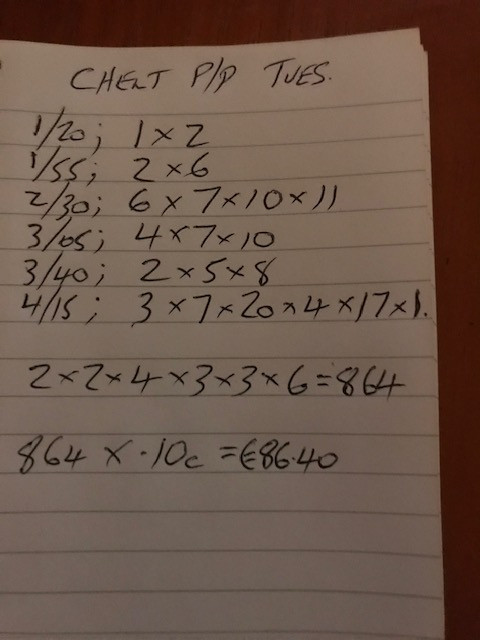 CHELT P/P TUES.
1/20; 1×2
1/55; 2×6
2/30; 6×7×10×11
3/05; 4×7×10
3/40; 2×5×8
4/15; 3×7×20×4×17×1.
2×2×4×3×3×6=864
864 × .10c = €86.40